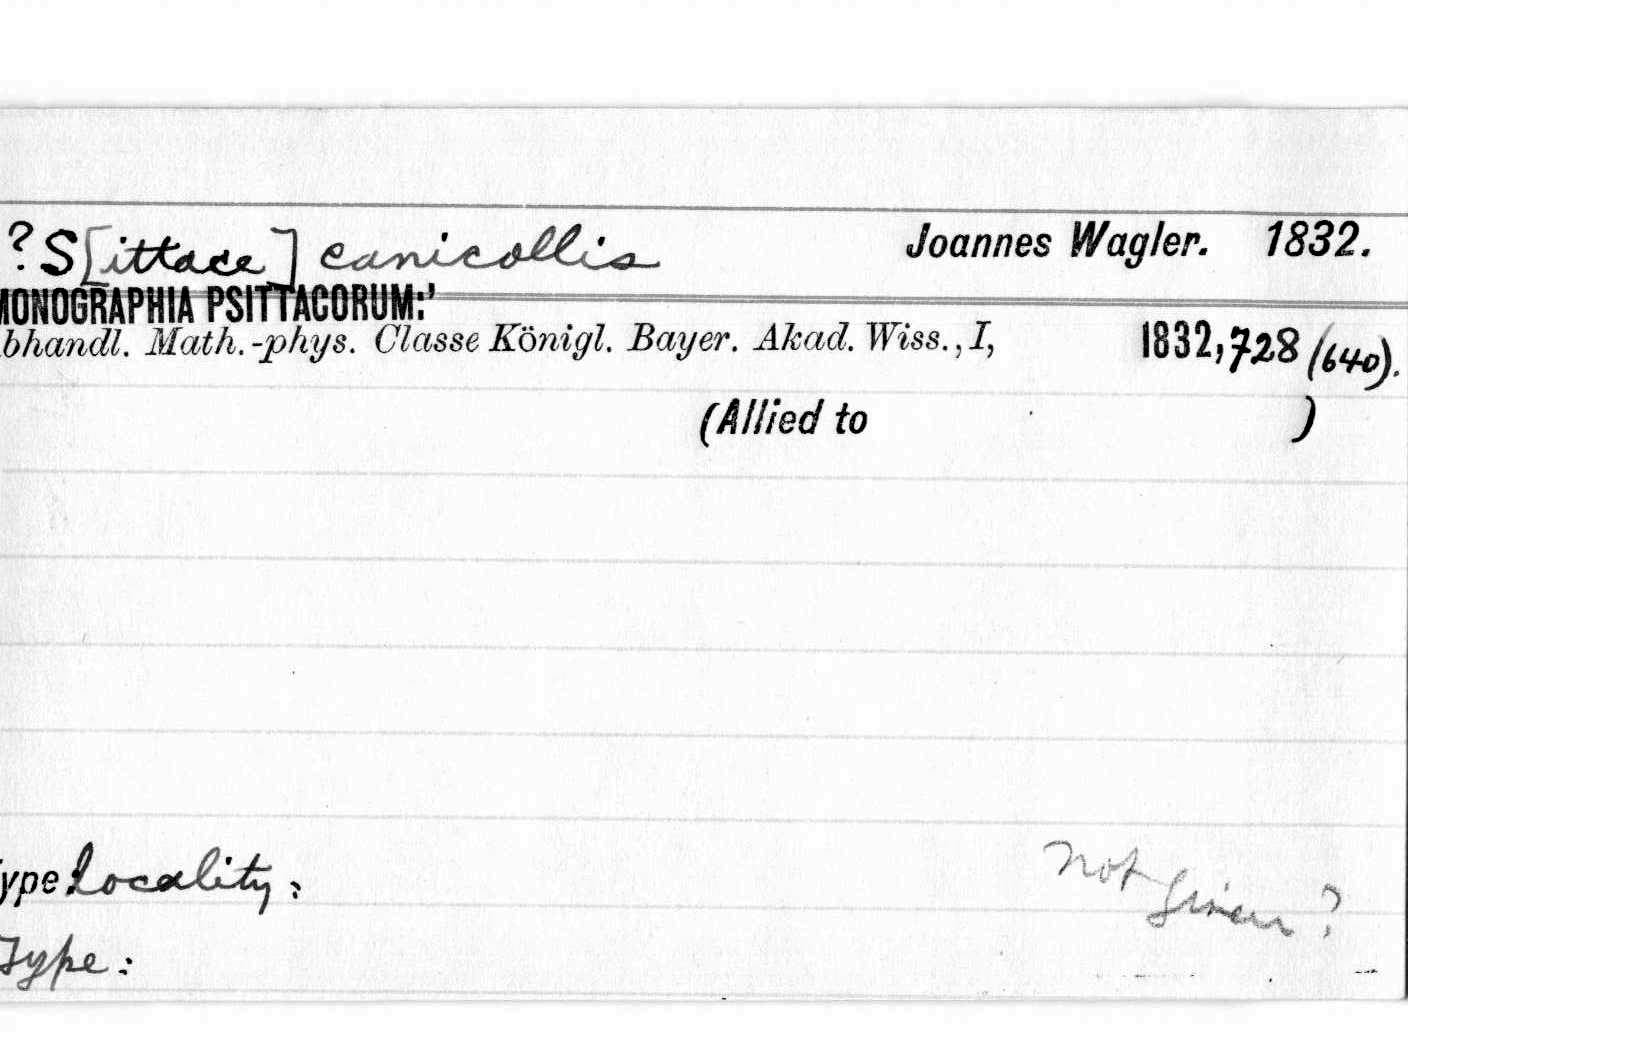 ?S[ittace] canicollis Joannes Wagler. 1832.
MONOGRAPHIA PSITTACORUM:'
bhandl. Math.-phys. Classe Königl. Bayer. Akad. Wiss., I, 1832, 728 (640).
(Allied to )
ype locality:
not given?
Type: